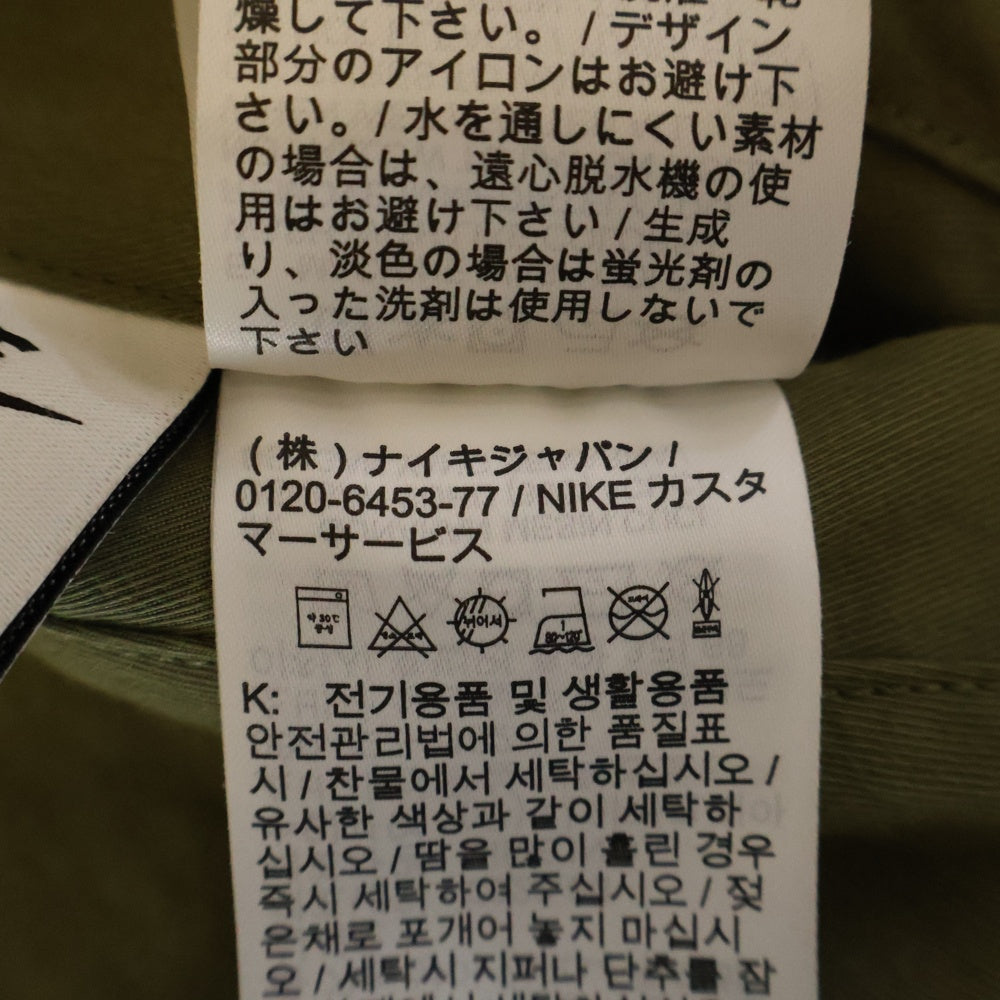 燥して下さい。 / デザイン
部分のアイロンはお避け下
さい。/ 水を通しにくい素材
の場合は、遠心脱水機の使
用はお避け下さい / 生成
り、淡色の場合は蛍光剤の
入った洗剤は使用しないで
下さい
(株) ナイキジャパン /
0120-6453-77 / NIKE カスタ
マーサービス
약 30℃
중성
염소표백
뉘어서
1
80~120℃
드라이
K: 전기용품 및 생활용품
안전관리법에 의한 품질표
시 / 찬물에서 세탁하십시오 /
유사한 색상과 같이 세탁하
십시오 / 땀을 많이 흘린 경우
즉시 세탁하여 주십시오 / 젖
은채로 포개어 놓지 마십시
오 / 세탁시 지퍼나 단추를 잠